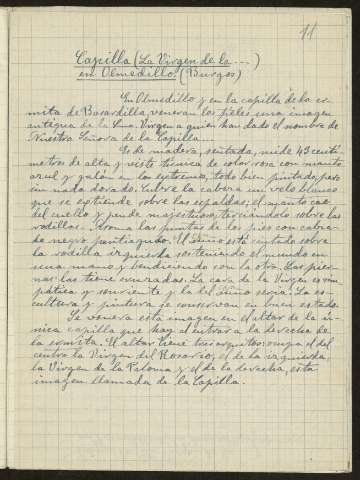 11
Capilla (La Virgen de la ....)
en Olmedillo (Burgos)
En Olmedillo y en la capilla de la er-
mita de Basardilla veneran los fieles una imagen
antigua de la Sma. Virgen a quien han dado el nombre de
Nuestra Señora de la Capilla.
Es de madera, sentada, mide 43 centí-
metros de alta y viste túnica de color rosa con manto
azul y galón en los extremos, todo bien pintado, pero
sin nada dorado. Cubre la cabeza un velo blanco
que se extiende sobre las espaldas; el manto cae
del cuello y pende majestuoso, terciándolo sobre las
rodillas. Asoma las puntas de los pies con calza-
do negro puntiagudo. El Niño está sentado sobre
la rodilla izquierda sosteniendo el mundo en
una mano y bendiciendo con la otra. Las pier-
nas las tiene cruzadas. La cara de la Virgen es sim-
pática y sonriente y la del Niño seria. La es-
cultura y pintura se conservan en buen estado.
Se venera esta imagen en el altar de la ú-
nica capilla que hay al entrar a la derecha de
la ermita. El altar tiene tres arquitos; ocupa el del
centro la Virgen del Rosario, el de la izquierda
la Virgen de la Paloma y el de la derecha, esta
imagen llamada de la Capilla.